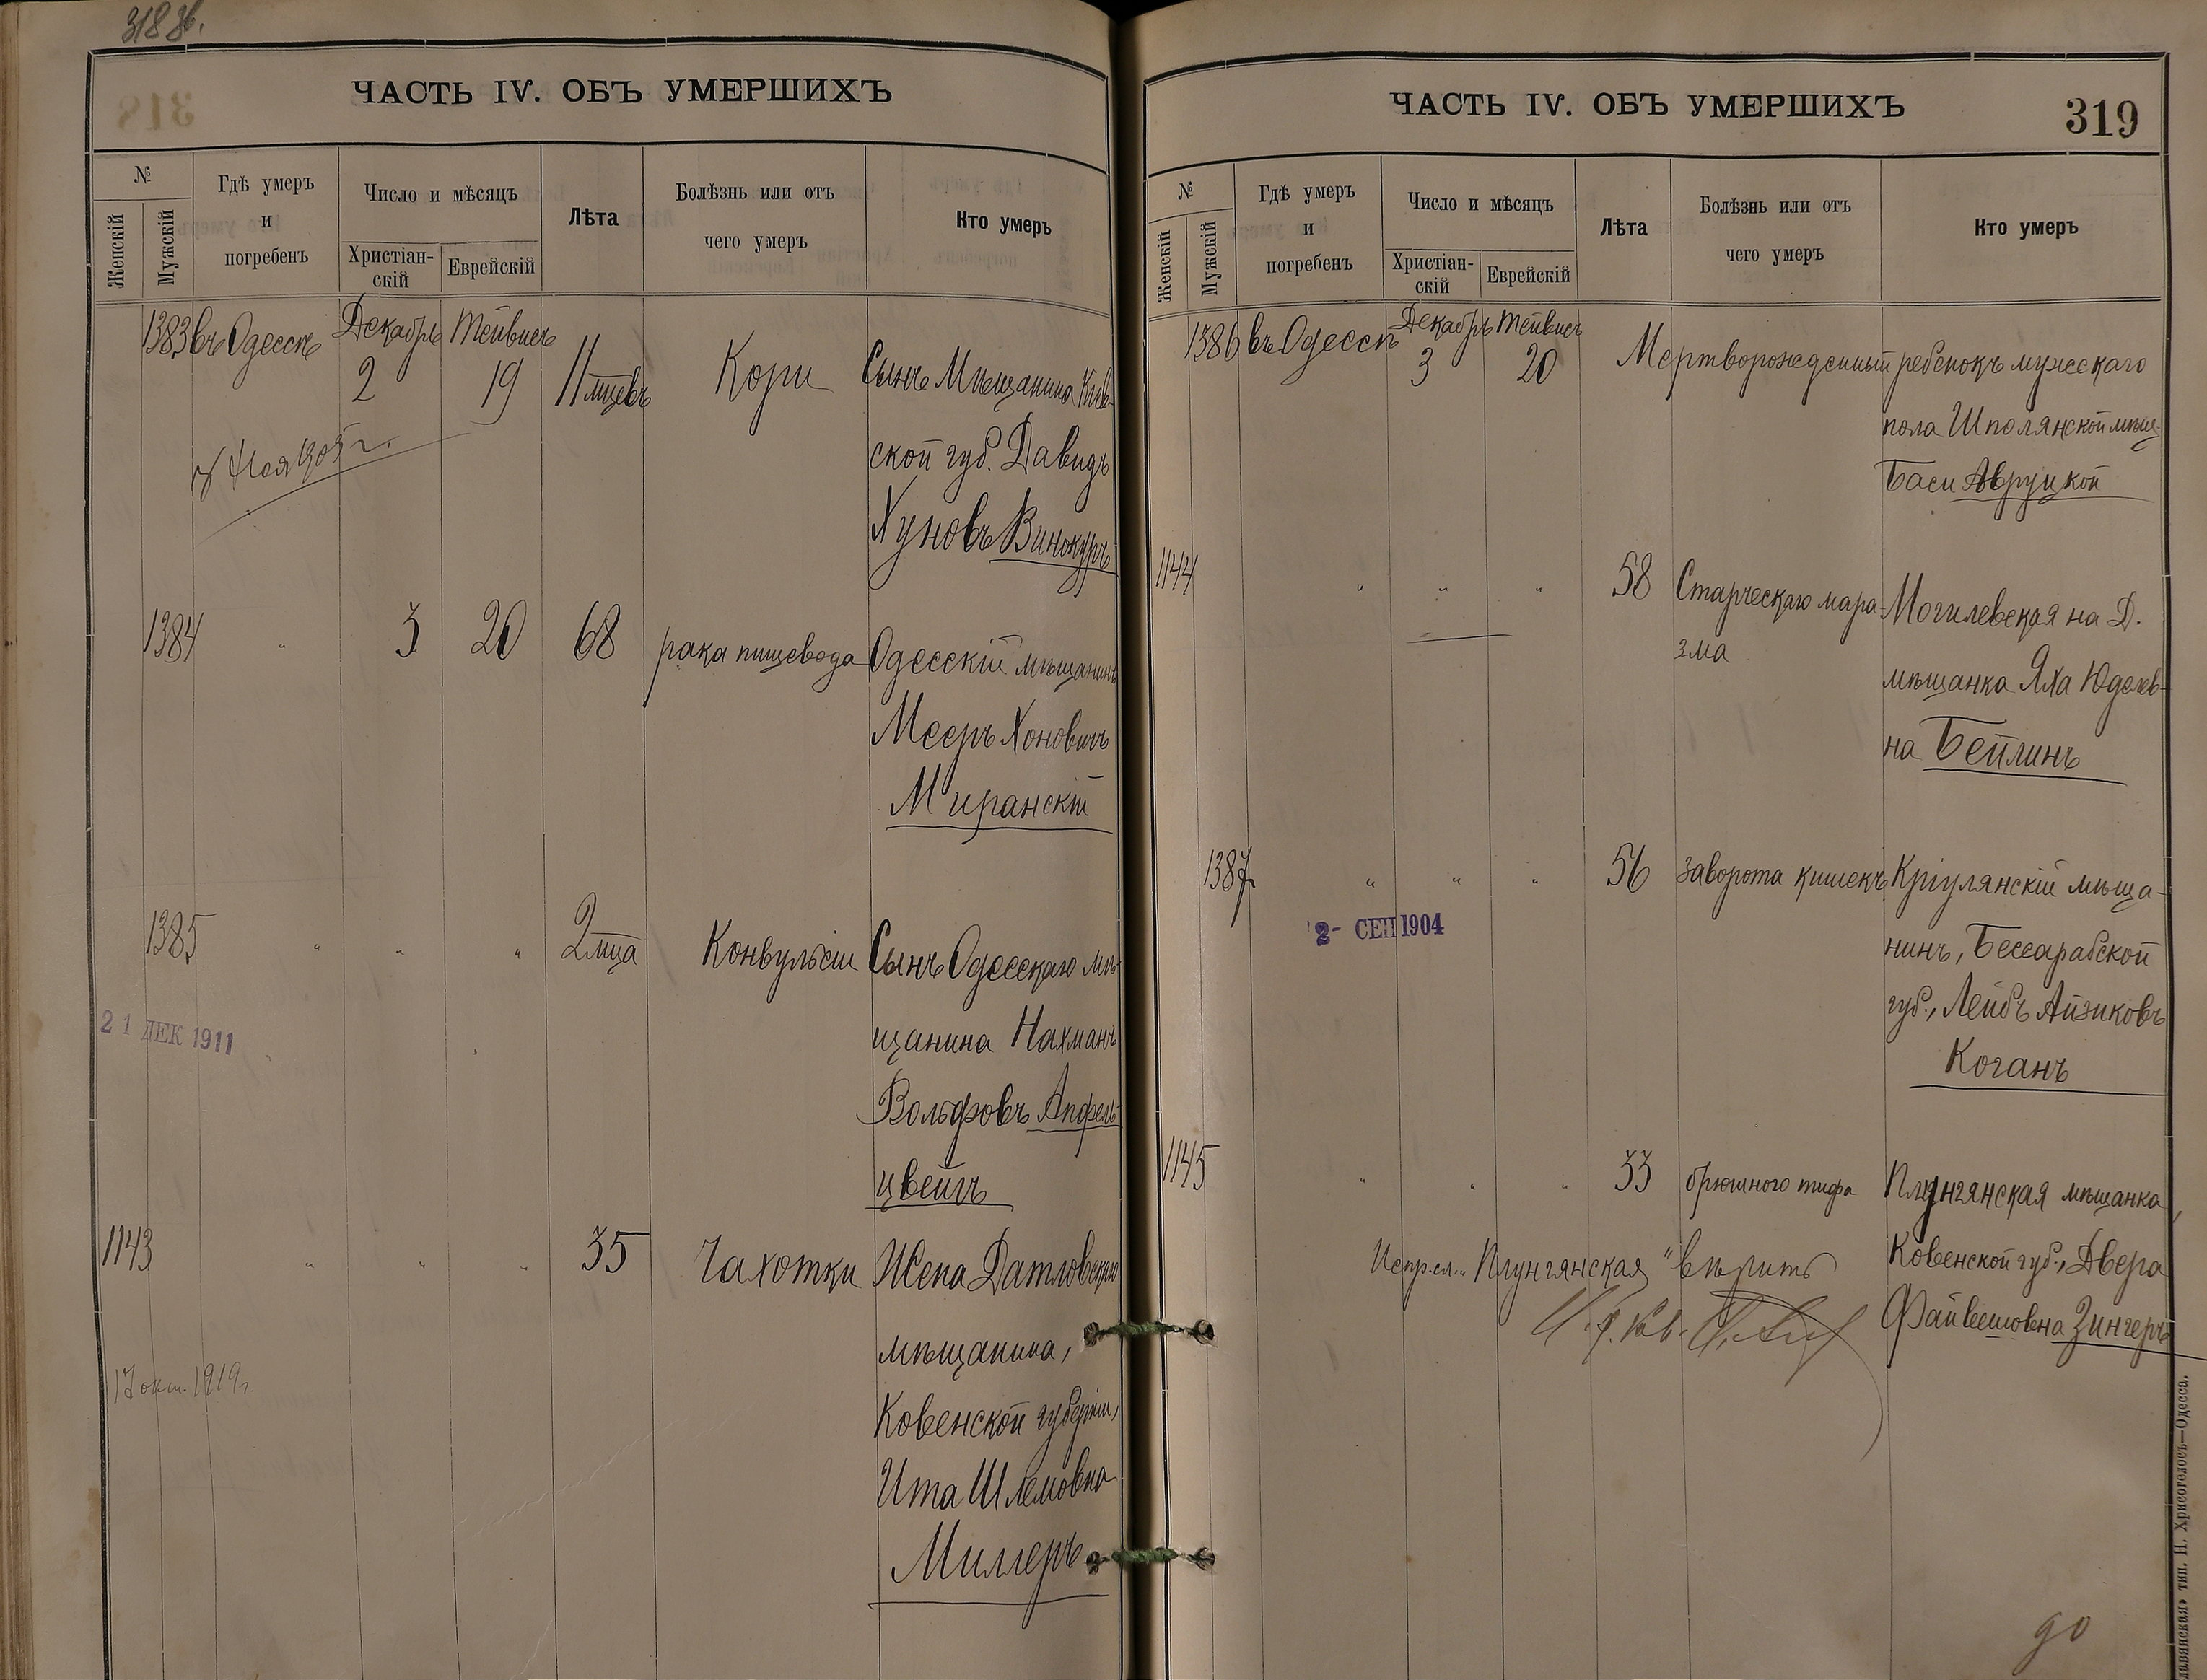 318 об.
ЧАСТЬ IV. ОБЪ УМЕРШИХЪ
№
Женскій
Мужскій
Гдѣ умеръ
и
погребенъ
Число и мѣсяцъ
Христіан-
скій
Еврейскій
Лѣта
Болѣзнь или отъ
чего умеръ
Кто умеръ
1383 въ Одессѣ Декабрь Тейвисъ
2 19 11 мцевъ Кори Сынъ Мѣщанина Кіев-
ской губ. Давидъ
Хуновъ Винокуръ
1905 г.
1384 " 3 20 68 рака пищевода Одесскій мѣщанинъ
Мееръ Хоновичъ
Миранскій
1385 " " " 2 мца Конвульсіи Сынъ Одесскаго мѣ-
щанина Нахманъ
Вольфовъ Апфель-
цвейгъ
21 ДЕК 1911
1143 " " " 35 Чахотки Жена Датновскаго
мѣщанина,
Ковенской губерніи,
Ита Шлемовна
Миллеръ
17 окт. 1919 г.
ЧАСТЬ IV. ОБЪ УМЕРШИХЪ
319
№
Женскій
Мужскій
Гдѣ умеръ
и
погребенъ
Число и мѣсяцъ
Христіан-
скій
Еврейскій
Лѣта
Болѣзнь или отъ
чего умеръ
Кто умеръ
1386 въ Одессѣ Декабрь Тейвисъ
3 20 Мертворожденный ребенокъ мужескаго
пола Шполянской мѣщ.
Баси Авруцкой
1144 " " " 58 Старческаго мара-
зма
Могилевская на Д.
мѣщанка Яха Юделев-
на Бейлинъ
1387 " " " 56 заворота кишекъ Кріулянскій мѣща-
нинъ, Бессарабской
губ., Лейбъ Айзиковъ
Коганъ
2- СЕН 1904
1145 " " " 33 брюшного тифа Плунгянская мѣщанка,
Ковенской губ., Двера
Файвешовна Зингеръ
Испр. сл. "Плунгянская" вѣрить
до
тип. Н. Хрисогелосъ—Одесса.